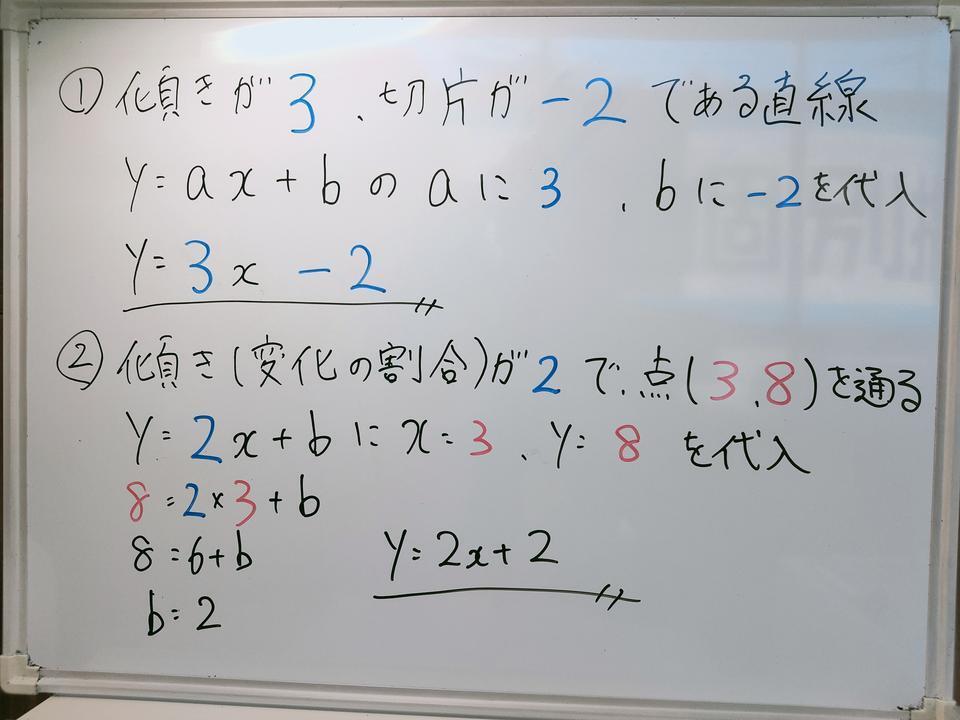 ① 傾きが3、切片が-2である直線
y=ax+bのaに3、bに-2を代入
y=3x-2
② 傾き(変化の割合)が2で、点(3,8)を通る
y=2x+bにx=3、y=8を代入
8=2×3+b
8=6+b
y=2x+2
b=2